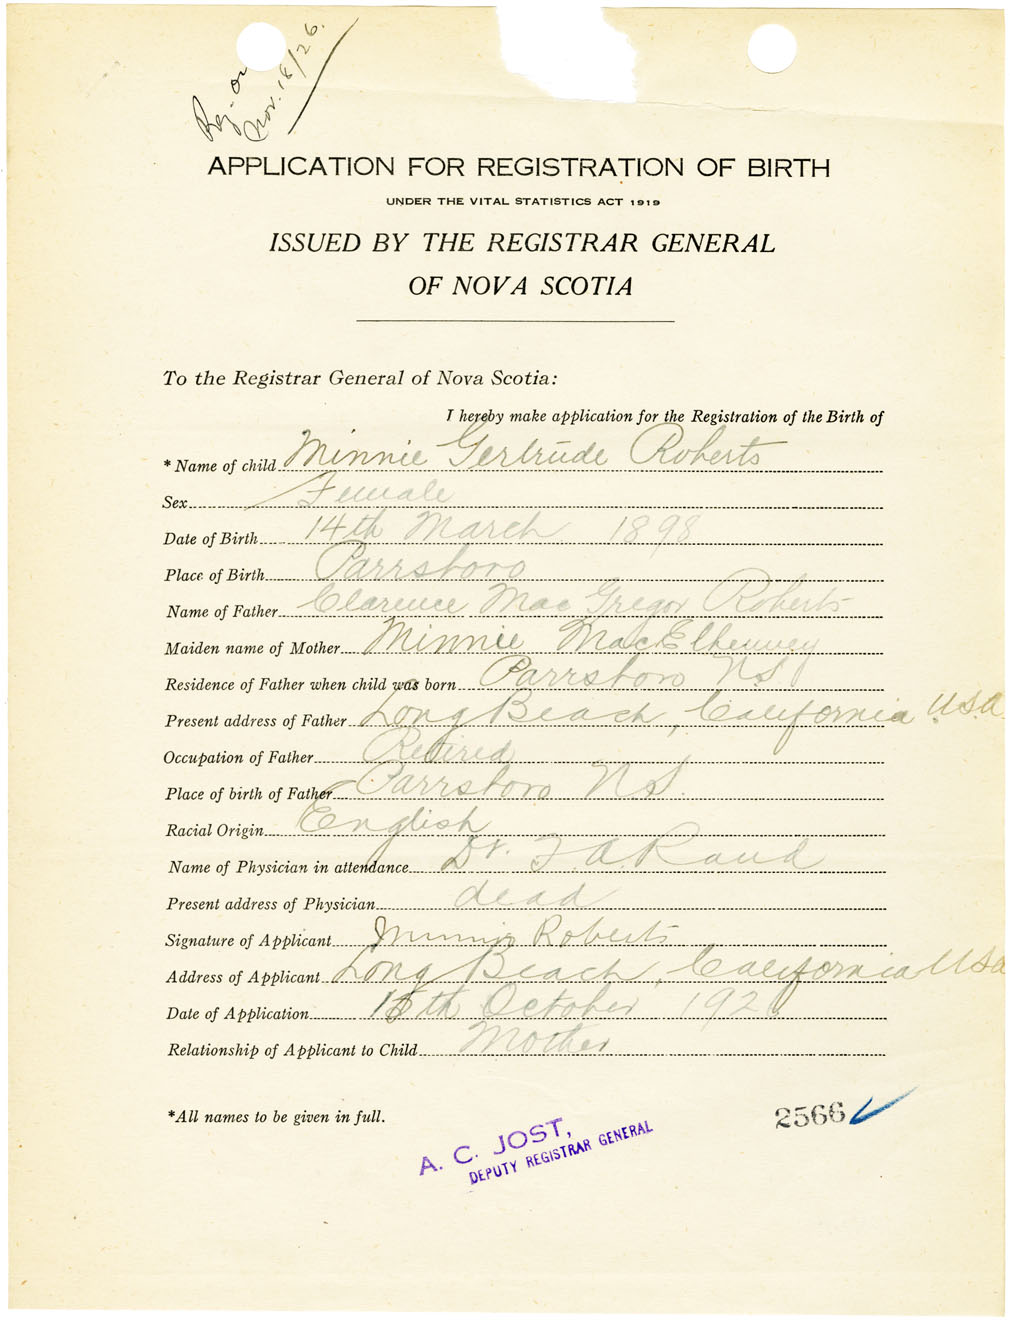 Reg. on
Nov. 18/26.
APPLICATION FOR REGISTRATION OF BIRTH
UNDER THE VITAL STATISTICS ACT 1919
ISSUED BY THE REGISTRAR GENERAL
OF NOVA SCOTIA
To the Registrar General of Nova Scotia:
I hereby make application for the Registration of the Birth of
* Name of child Minnie Gertrude Roberts
Sex Female
Date of Birth 14th March 1898
Place of Birth Parrsboro
Name of Father Clarence Mac Gregor Roberts
Maiden name of Mother Minnie MacElhenney
Residence of Father when child was born Parrsboro N.S.
Present address of Father Long Beach, California U.S.A.
Occupation of Father Retired
Place of birth of Father Parrsboro N.S.
Racial Origin English
Name of Physician in attendance Dr. F A Rand
Present address of Physician dead
Signature of Applicant Minnie Roberts
Address of Applicant Long Beach, California USA
Date of Application October
Relationship of Applicant to Child Mother
*All names to be given in full.
2566
A. C. JOST,
DEPUTY REGISTRAR GENERAL